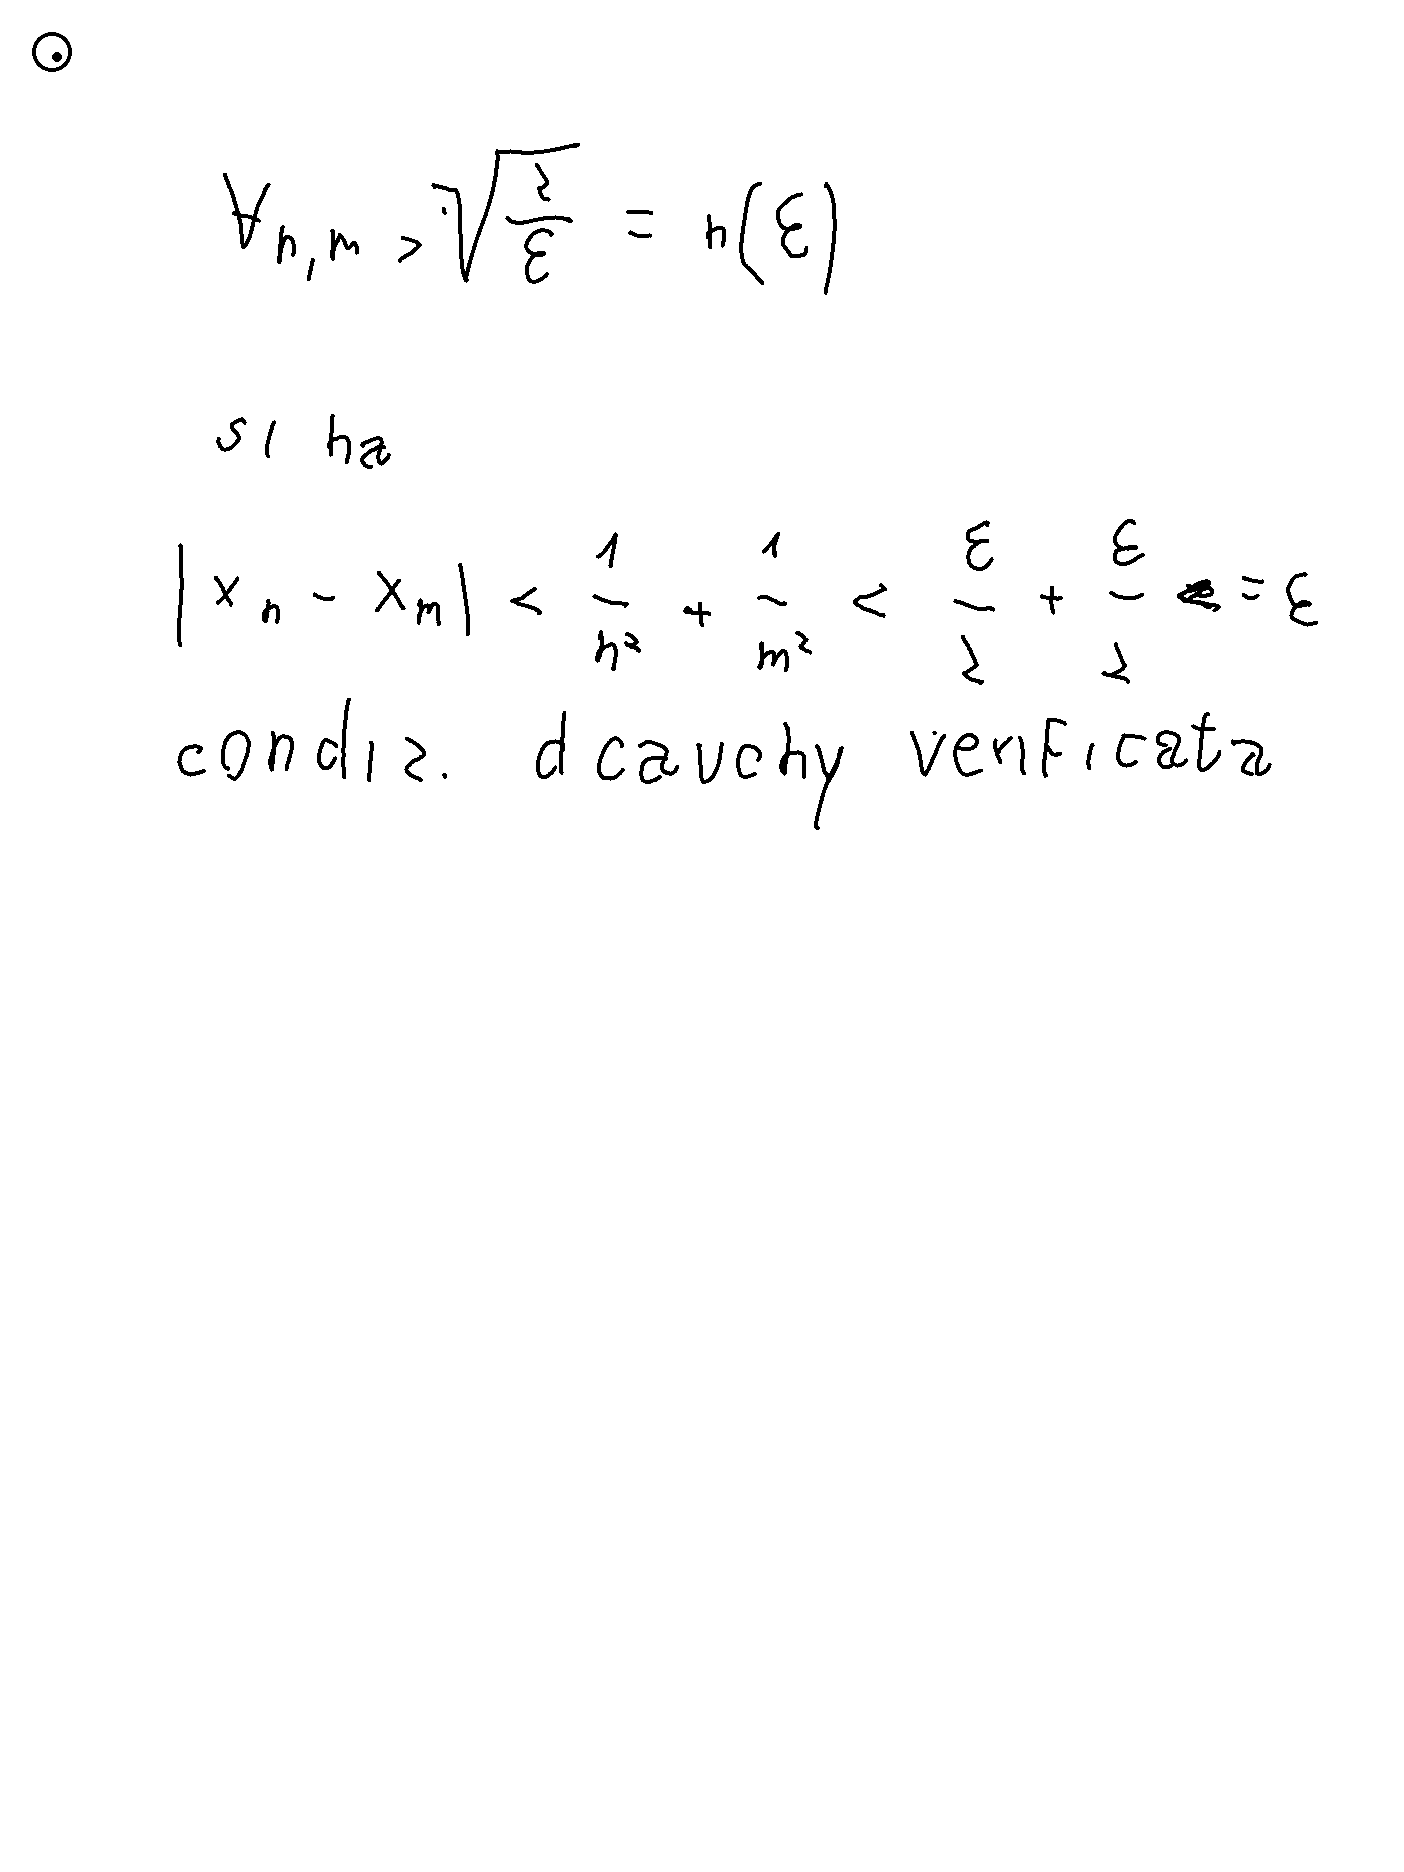 ∀n,m > √(2/ε) = n(ε)
si ha
|xn - xm| < 1/n² + 1/m² < ε/2 + ε/2 = ε
condiz. d cauchy verificata